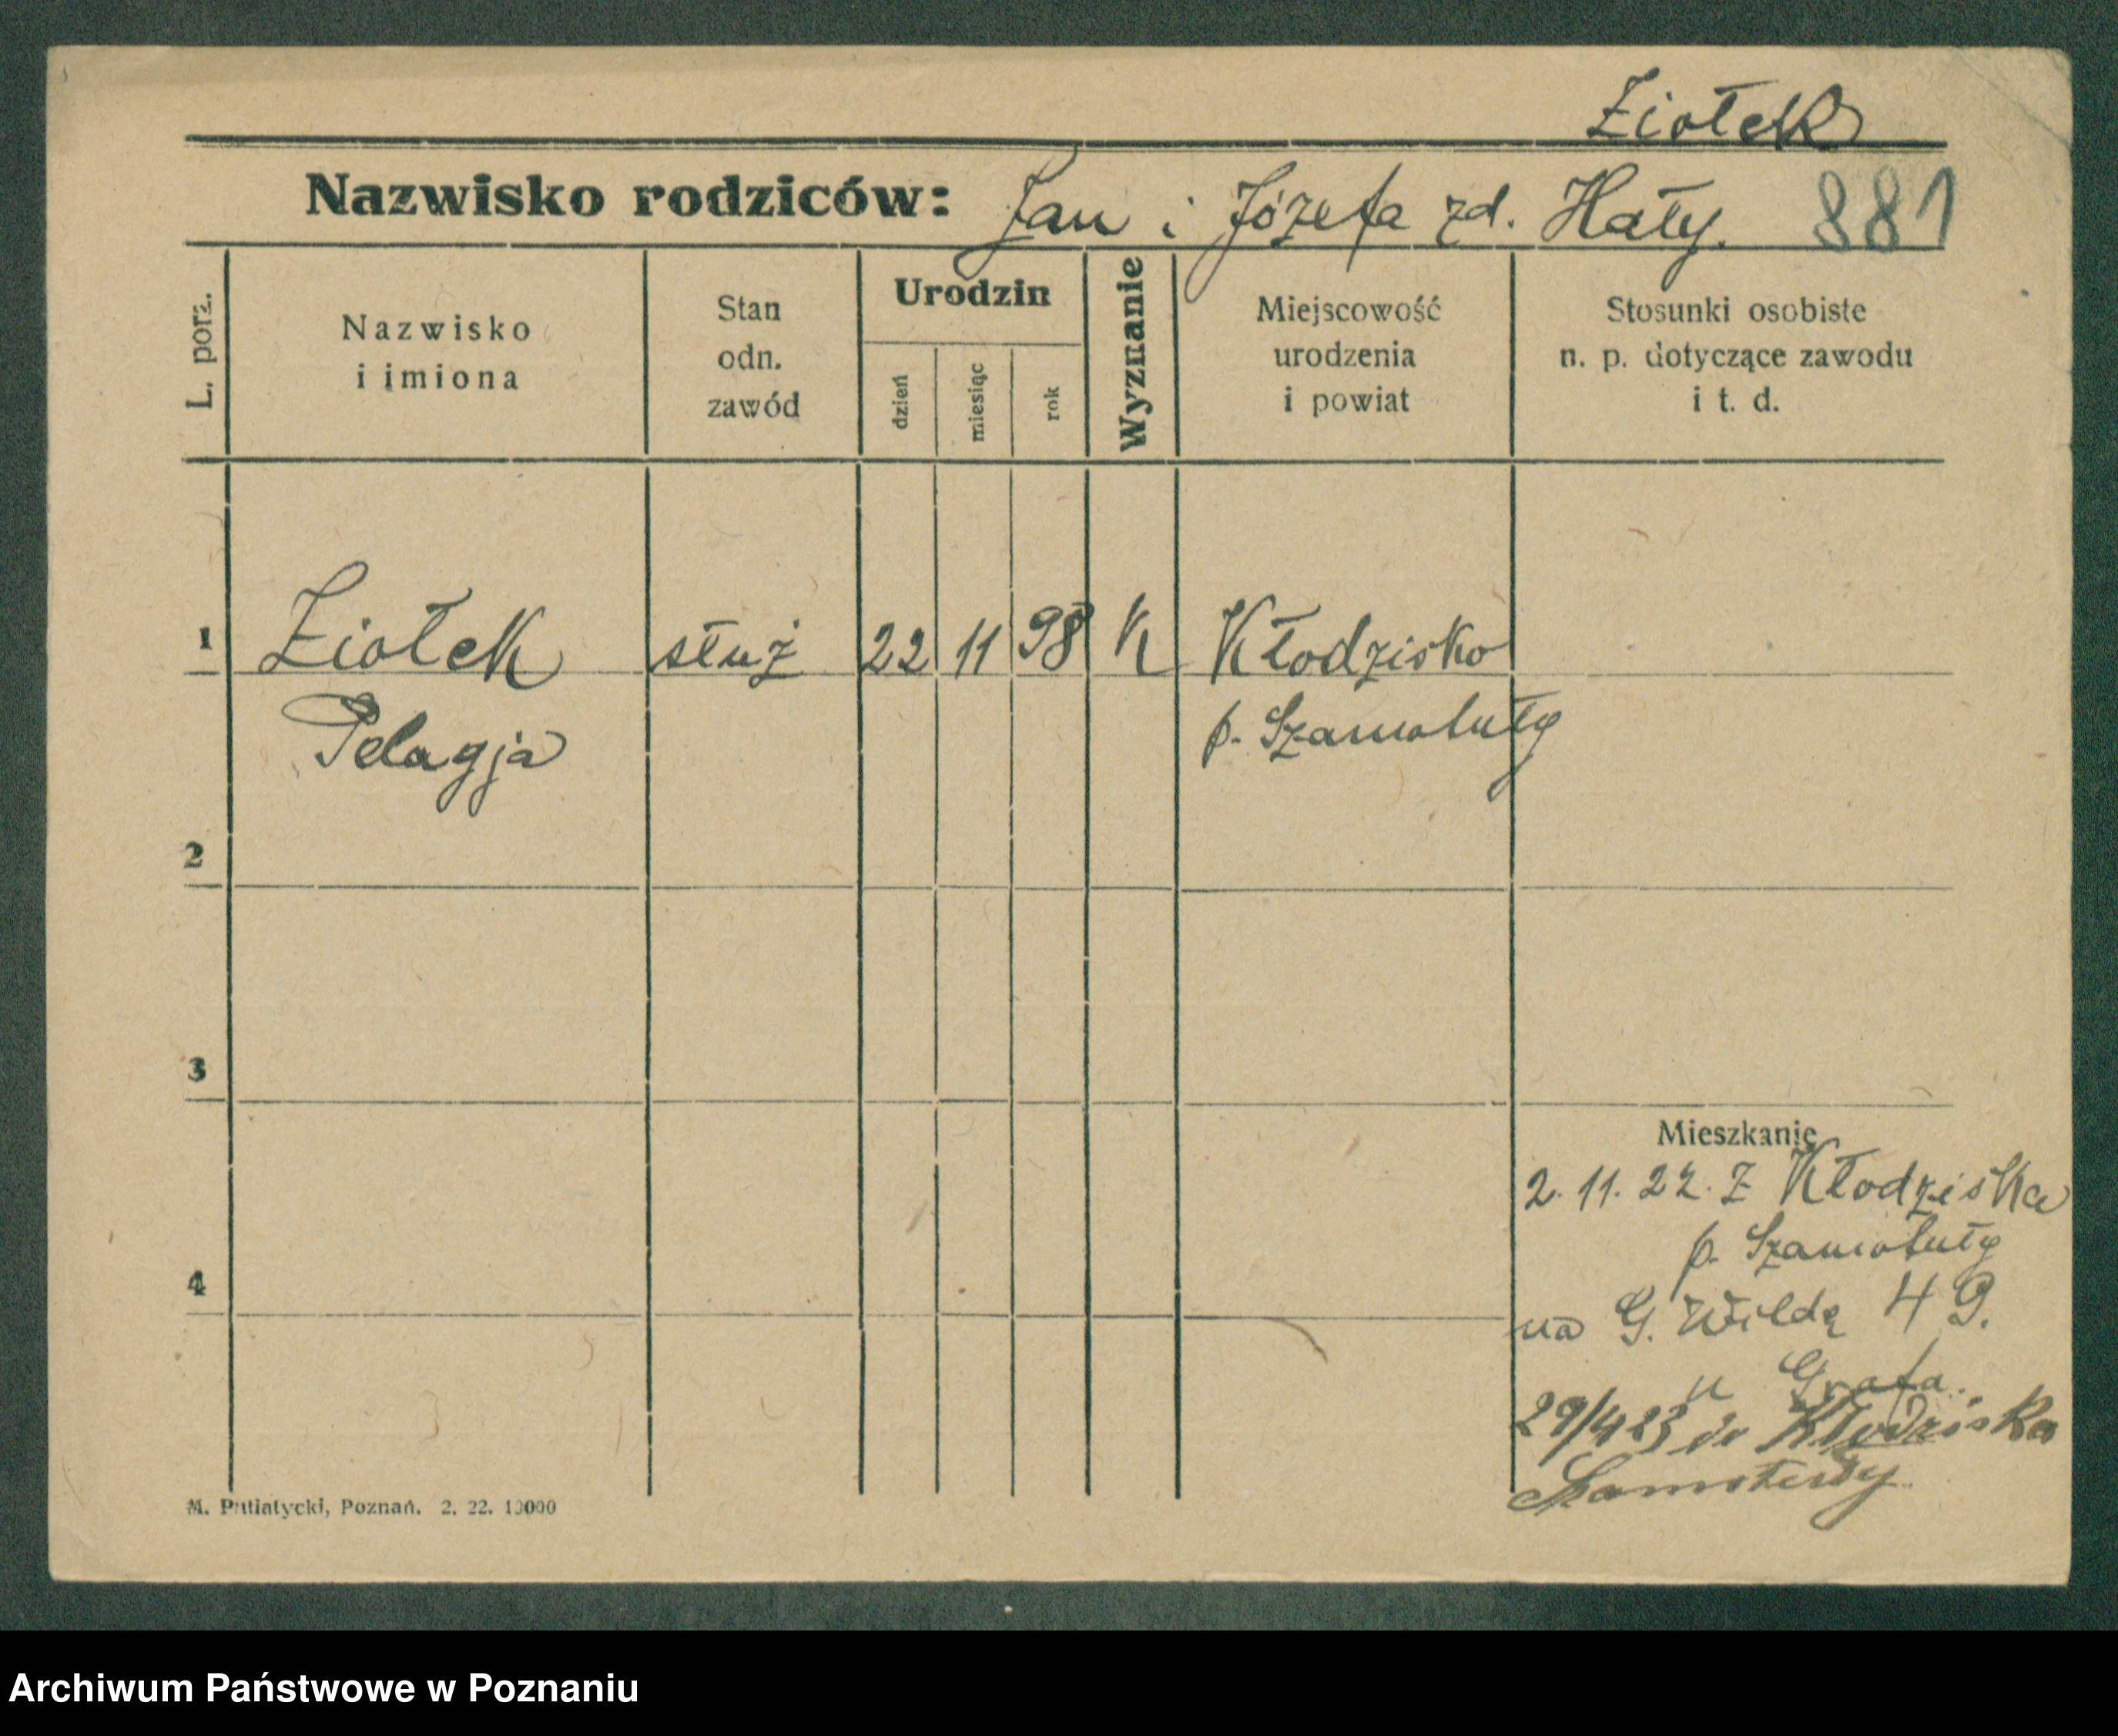 Ziołek
Nazwisko rodziców: Jan i Józefa zd. Hały. 881
L. porz.
Nazwisko
i imiona
Stan
odn.
zawód
Urodzin
dzień
miesiąc
rok
Wyznanie
Miejscowość
urodzenia
i powiat
Stosunki osobiste
n. p. dotyczące zawodu
i t. d.
1 Ziołek służ 22 11 98 K Kłodzisko
Pelagja p. Szamotuły
2
3
Mieszkanie
2. 11. 22. Z Kłodziska
p. Szamotuły
4
na G. Wildę 49.
u Grafa.
29/4 23 do Kłodziska
Szamotuły
M. Putiatycki, Poznań. 2. 22. 10000
Archiwum Państwowe w Poznaniu